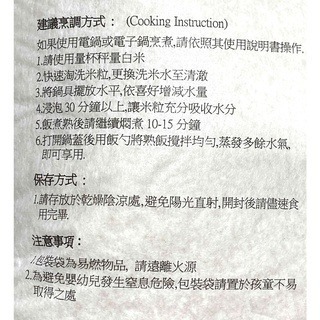 建議烹調方式： (Cooking Instruction)
如果使用電鍋或電子鍋烹煮,請依照其使用說明書操作.
1.請使用量杯秤量白米
2.快速淘洗米粒,更換洗米水至清澈
3.將鍋具擺放水平,依喜好增減水量
4.浸泡30分鐘以上,讓米粒充分吸收水分
5.飯煮熟後請繼續燜煮10-15分鐘
6.打開鍋蓋後用飯勺將熟飯攪拌均勻,蒸發多餘水氣,
即可享用.
保存方式：
1.請存放於乾燥陰涼處,避免陽光直射,開封後請儘速食
用完畢.
注意事項：
1.包裝袋為易燃物品, 請遠離火源
2.為避免嬰幼兒發生窒息危險,包裝袋請置於孩童不易
取得之處